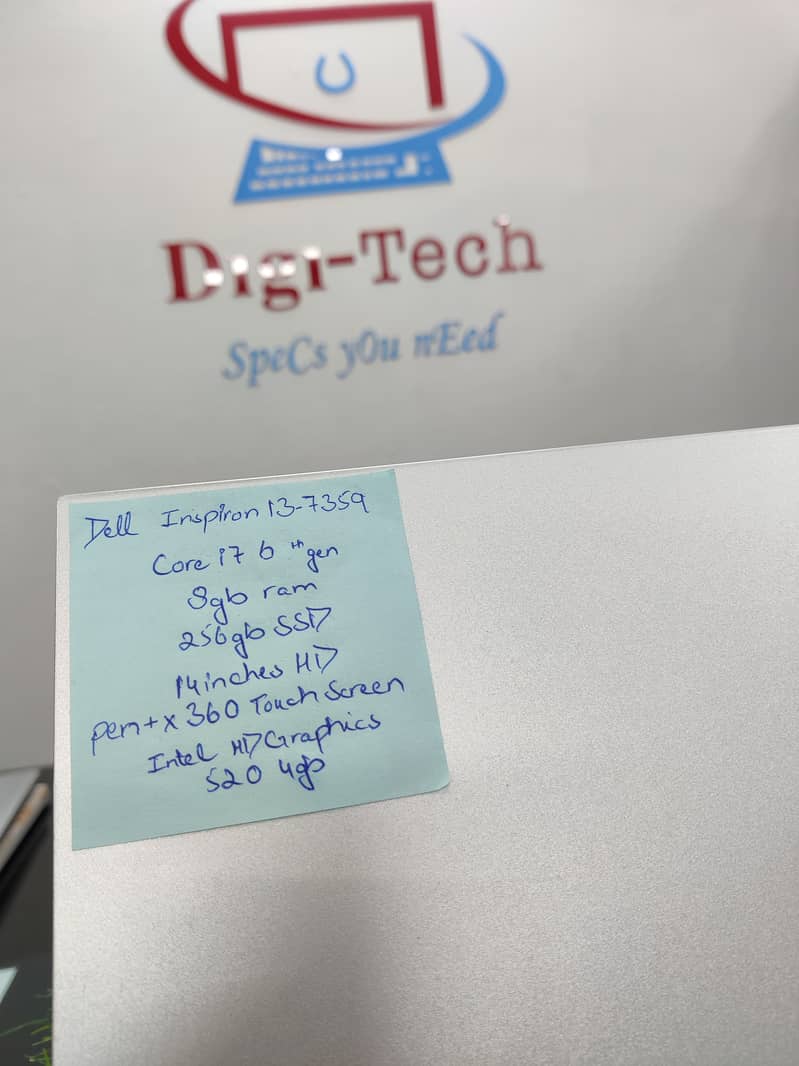 Digi-Tech
SpeCs y0u nEed
Dell Inspiron 13-7359
Core i7 6th gen
8gb ram
256gb SSD
14inches HD
pen+x360 Touch Screen
Intel HD Graphics
520 4gb